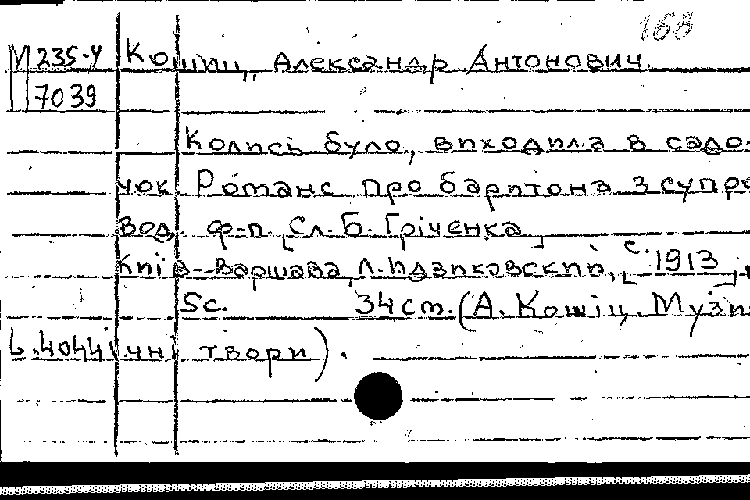 168
М 235-4 Кошиц, Александр Антонович.
7039
Колись було, виходила в садо-
чок. Романс про баритона з супро-
вод. ф-п. [Сл. Б. Грiченка]
Київ-Варшава, Л. Идзиковский, [с. 1913],
5с. 34см. (А. Кошiц. Музи-
L.4044 чнi твори).